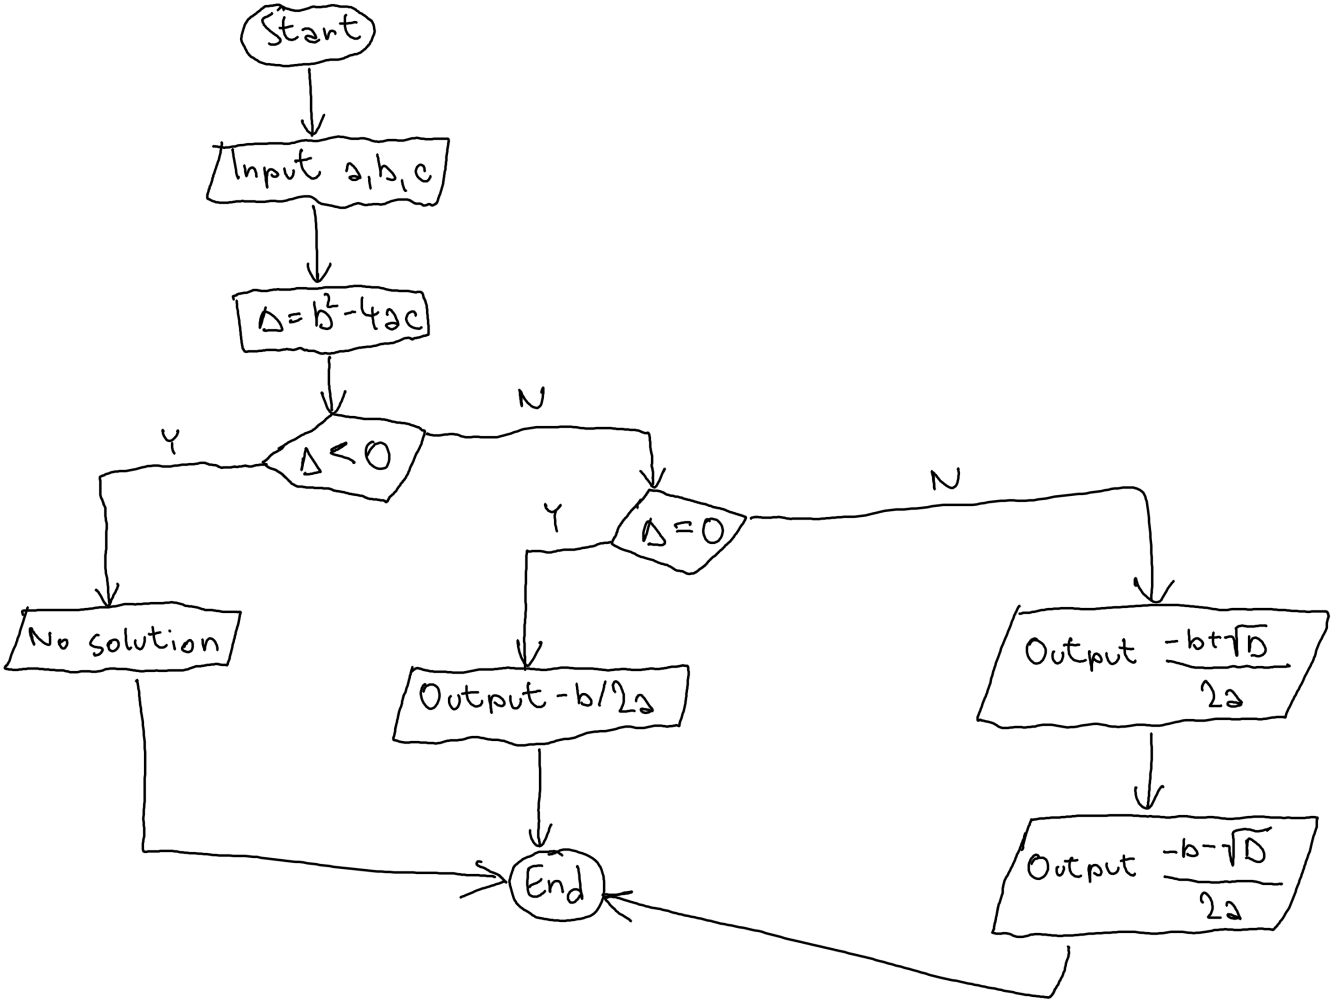 Start
Input a,b,c
Δ=b²-4ac
Δ<0
Y
N
Δ=0
Y
N
No solution
Output -b/2a
Output (-b+√D)/2a
Output (-b-√D)/2a
End